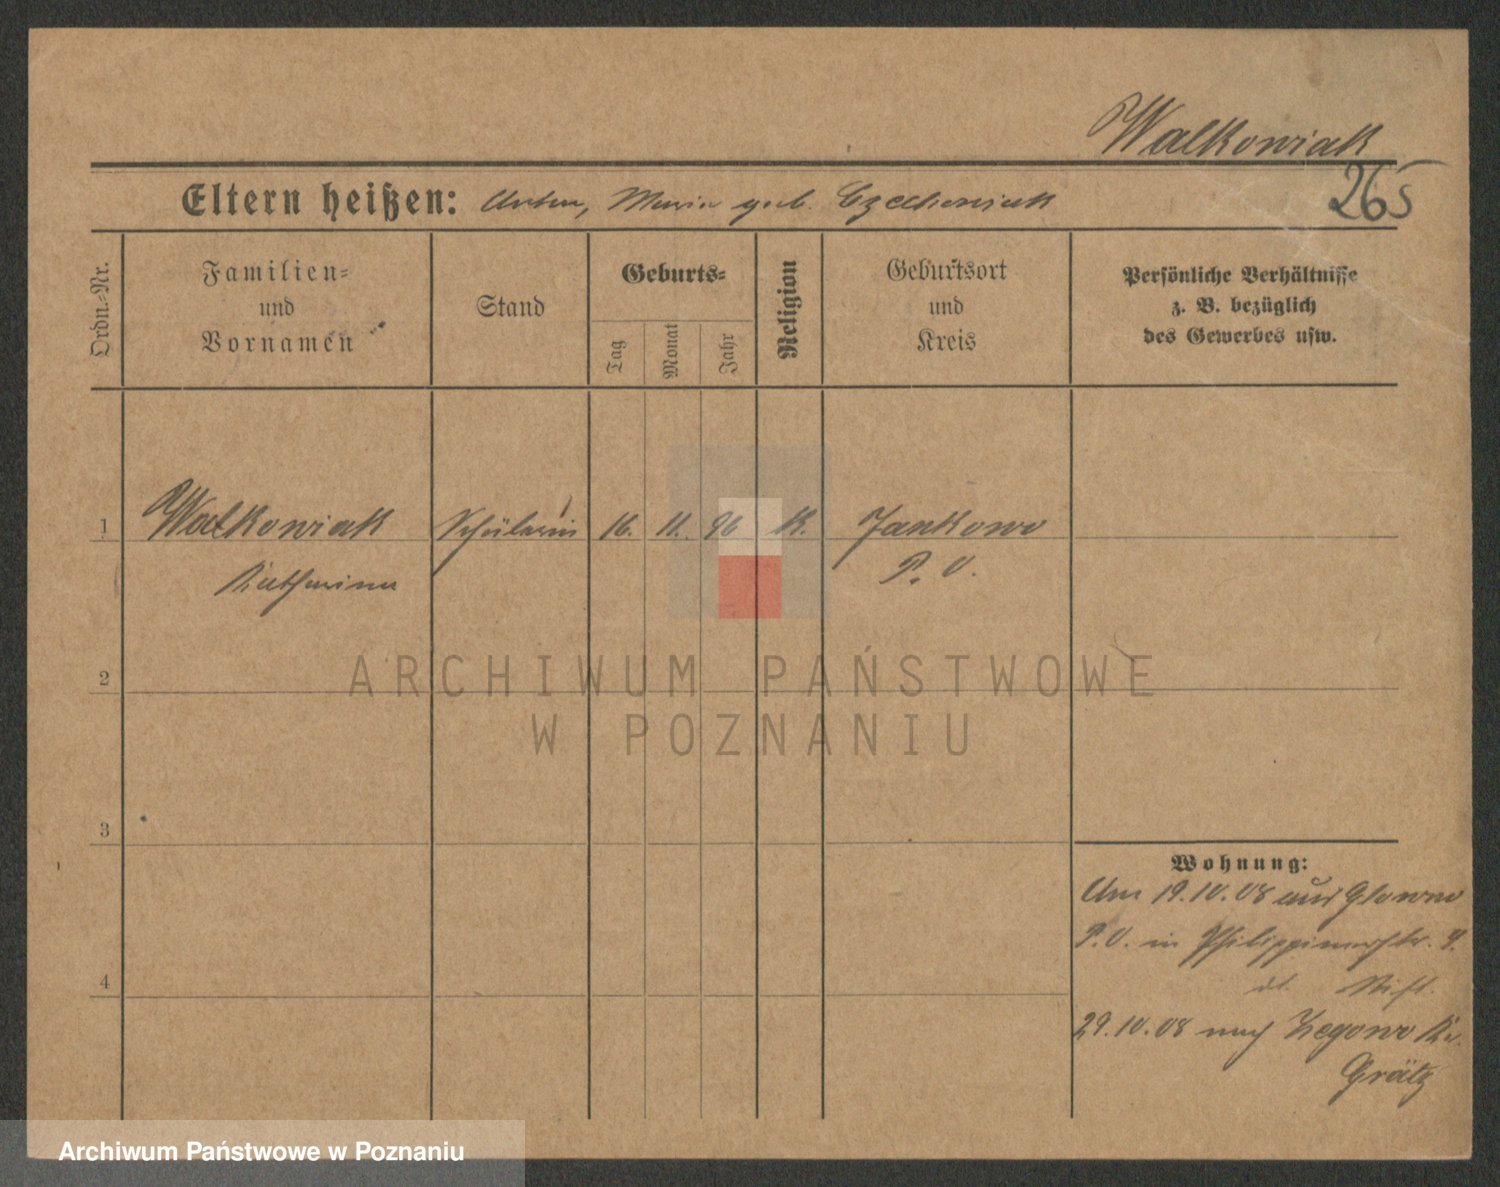 Walkowiak
265
Eltern heißen: Anton, Maria geb. Czechowiak
Ordn.-Nr.
Familien-
und
Vornamen
Stand
Geburts-
Tag
Monat
Jahr
Religion
Geburtsort
und
Kreis
Persönliche Verhältnisse
z. B. bezüglich
des Gewerbes usw.
1 Walkowiak Schülerin 16. 11. 96 K. Jankowo
Katharina P. O.
2
3
4
Wohnung:
Am 19.10.08 aus Glowno
P.O. in
29.10.08 nach Kr.
Grätz
ARCHIWUM PAŃSTWOWE
W POZNANIU
Archiwum Państwowe w Poznaniu